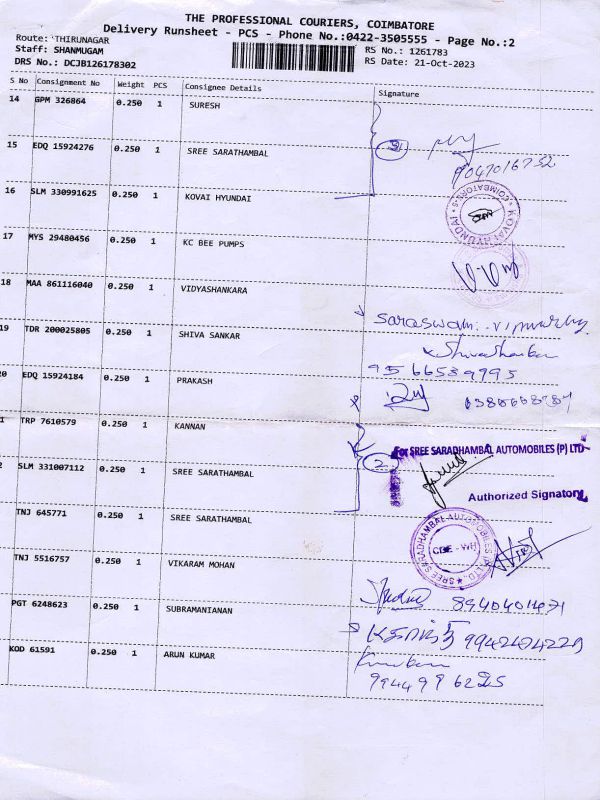 THE PROFESSIONAL COURIERS, COIMBATORE
Delivery Runsheet - PCS - Phone No.:0422-3505555 - Page No.:2
Route: THIRUNAGAR
RS No.: 1261783
Staff: SHANMUGAM
RS Date: 21-Oct-2023
DRS No.: DCJB126178302
S No Consignment No Weight PCS Consignee Details Signature
14 GPM 326864 0.250 1 SURESH
15 EDQ 15924276 0.250 1 SREE SARATHAMBAL
16 SLM 330991625 0.250 1 KOVAI HYUNDAI
KOVAI HYUNDAI
17 MYS 29480456 0.250 1 KC BEE PUMPS
18 MAA 861116040 0.250 1 VIDYASHANKARA
19 TDR 200025805 0.250 1 SHIVA SANKAR
9566539795
0 EDQ 15924184 0.250 1 PRAKASH
1 TRP 7610579 0.250 1 KANNAN
2
For SREE SARADHAMBAL AUTOMOBILES (P) LTD
2 SLM 331007112 0.250 1 SREE SARATHAMBAL
Authorized Signatory
TNJ 645771 0.250 1 SREE SARATHAMBAL
SREE SARADHAMBAL AUTOMOBILES (P) LTD.
TNJ 5516757 0.250 1 VIKARAM MOHAN
PGT 6248623 0.250 1 SUBRAMANIANAN
KOD 61591 0.250 1 ARUN KUMAR
9944996225